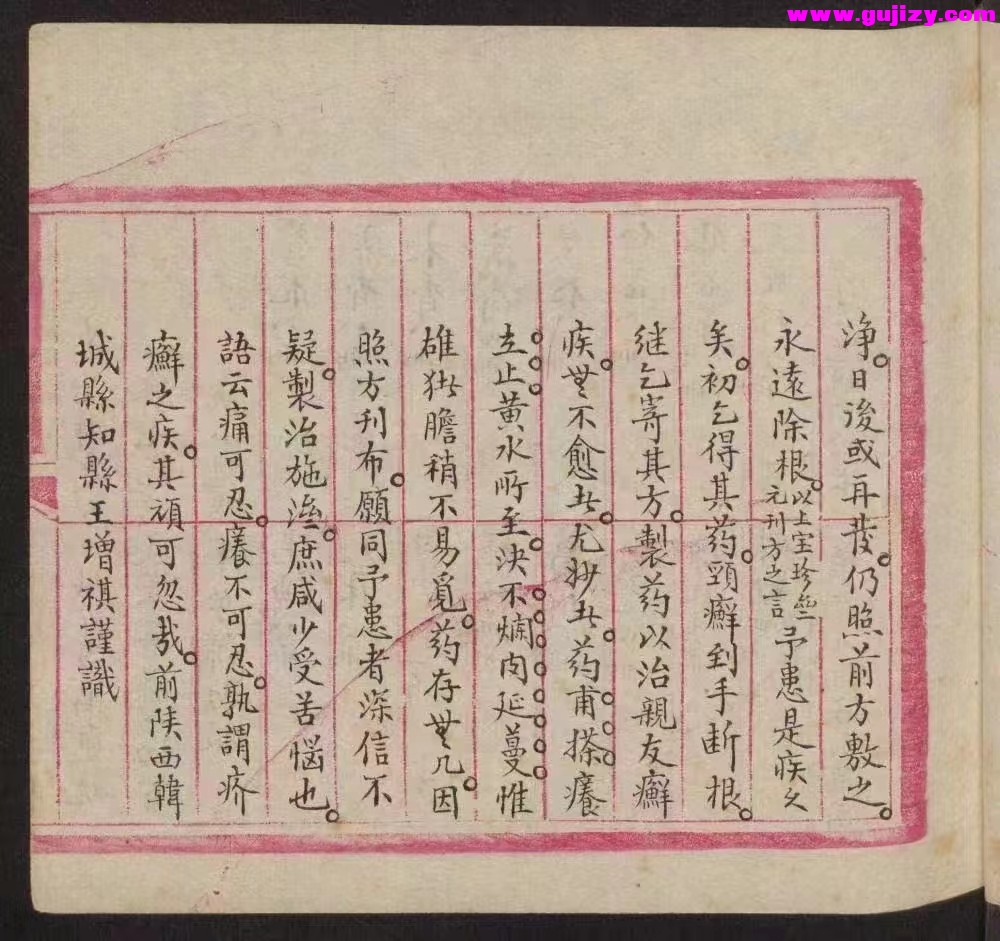 www.gujizy.com
浄。日後或再發。仍照前方敷之。
永遠除根。以上室珍無
元刊方之言予患是疾久
矣。初乞得其药。頸癬到手断根。
继乞寄其方。製药以治親友癬
疾。無不愈者。尤妙者。药甫搽癢
立止。黄水所至。决不爛肉延蔓。惟
雄狐胆稍不易覓。药存無几。因
照方刊布。願同予患者深信不
疑。製治施送。庶咸少受苦惱也。
語云痛可忍。癢不可忍。孰謂疥
癬之疾。其頑可忽哉。前陕西韓
城縣知縣王增祺謹識